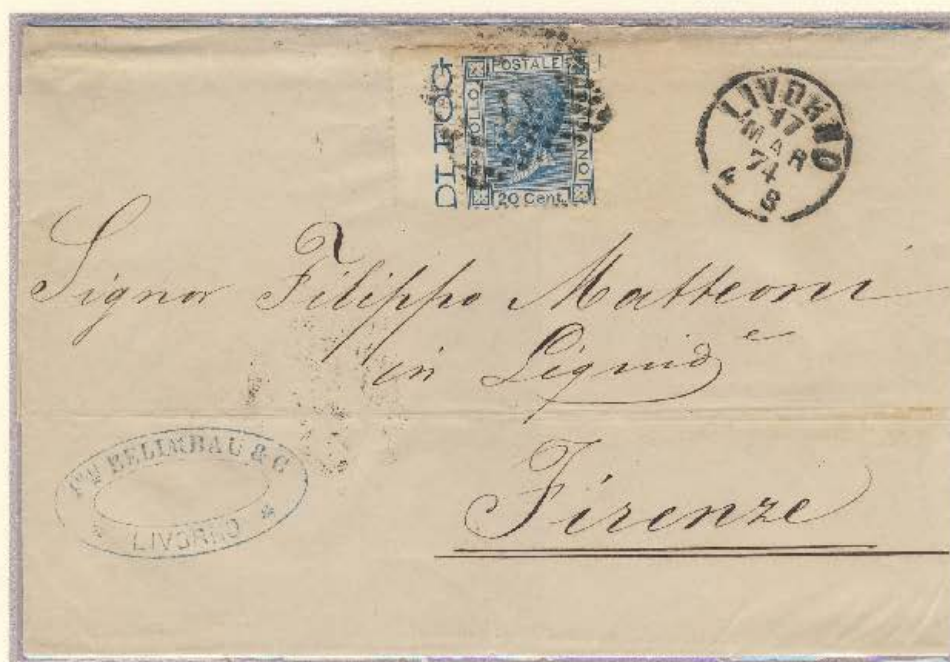 DI FOG
POSTALE
BOLLO
20 Cent.
LIVORNO
17
MAR
74
4 S
Signor Filippo Matteoni
in Liquid e
Firenze
BELIMBAU & C
LIVORNO